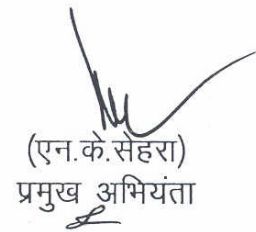 (एन.के.सेहरा)
प्रमुख अभियंता